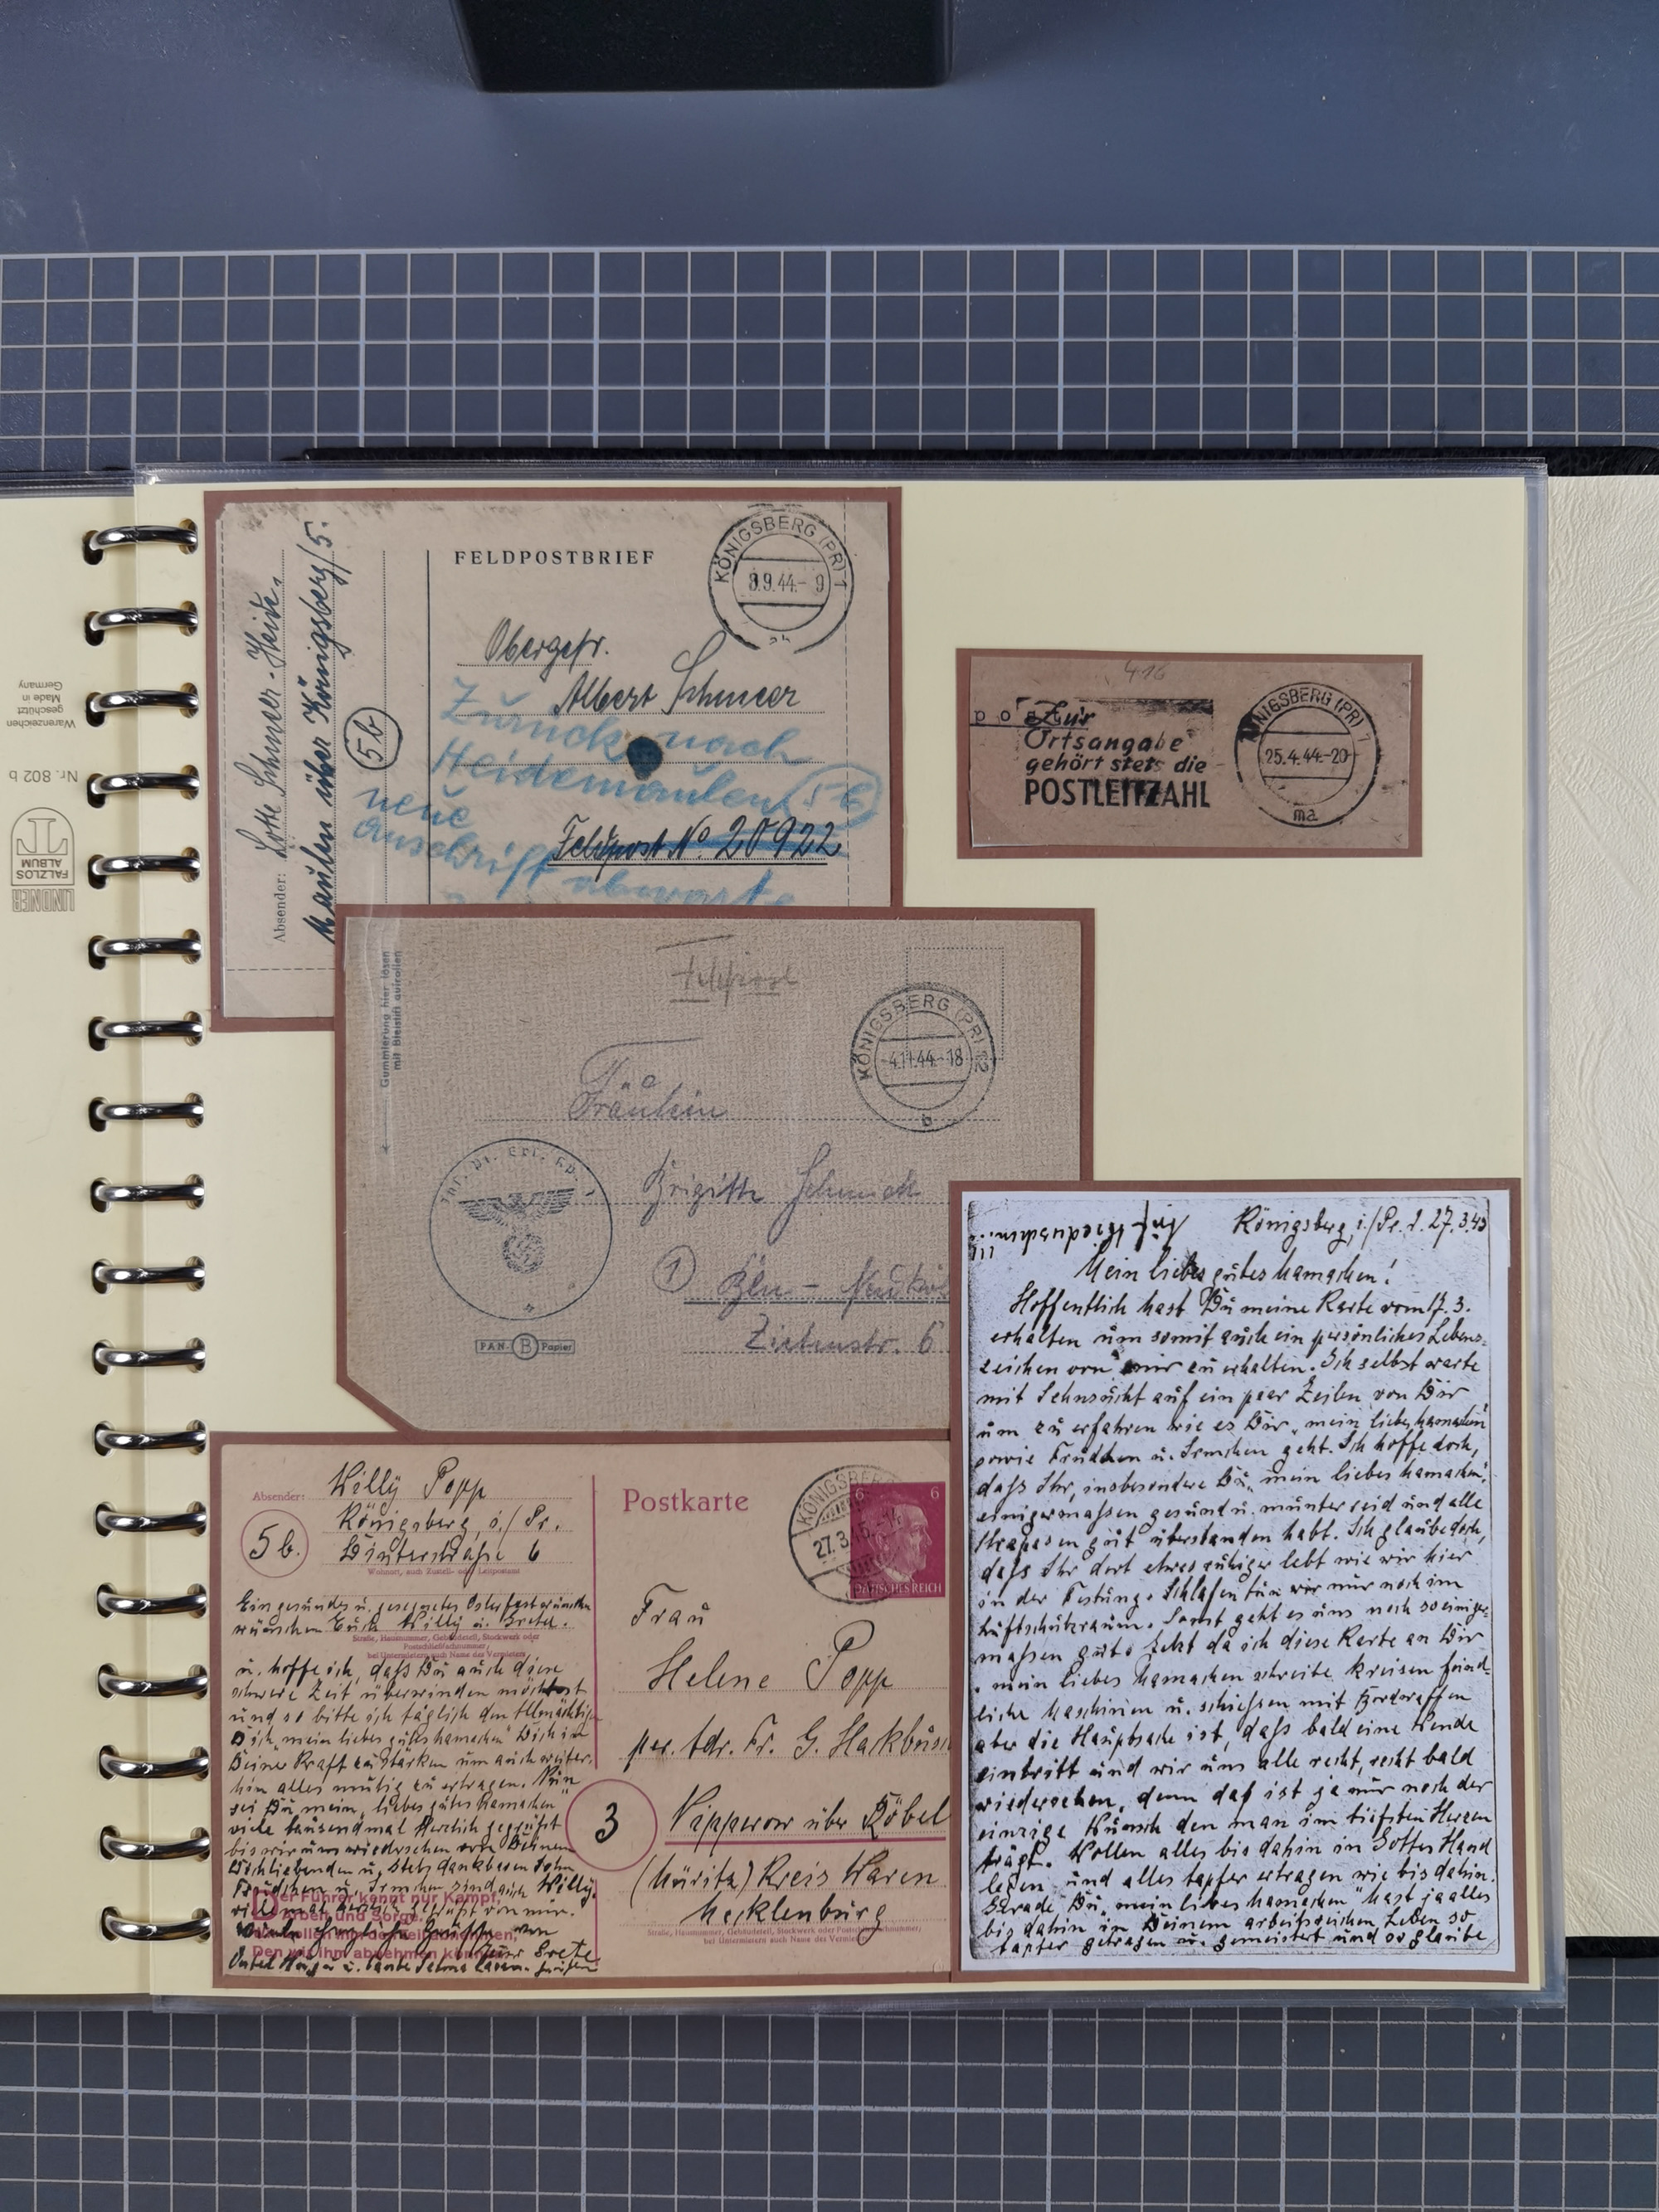 Nr. 802 b
Warenzeichen
geschützt
Made in
Germany
LINDNER
FALZLOS
ALBUM
FELDPOSTBRIEF
KÖNIGSBERG (PR) 1
8.9.44-9
Absender: Lotte Schmeer-Heide-
maulen über Königsberg/5.
5b
Obergefr.
Albert Schmeer
Zurück nach
Heidemaulen 5b
neue
Anschrift abwarte
Feldpost No. 20922
416
Zur
Ortsangabe
gehört stets die
POSTLEITZAHL
KÖNIGSBERG (PR) 1
25.4.44-20
ma
Gummierung hier lösen
mit Bleistift aufrollen
Feldpost
KÖNIGSBERG (PR) 12
-4.11.44-18
b
Fräulein
Brigitte
1 Bln - Neuköl
Zietenstr. 6
PAN B Papier
Absender: Willy Popp
5b. Königsberg, i./Pr.
6
Wohnort, auch Zustell- oder Leitpostamt
Postkarte
KÖNIGSBERG
27.3.45.-14
6 6
DEUTSCHES REICH
Ein gesundes u. gesegnetes Osterfest
wünschen Euch Willy u. Gretel.
Straße, Hausnummer, Gebäudeteil, Stockwerk oder
Postschließfachnummer;
bei Untermietern auch Name des Vermieters
u. hoffe ich, daß Du auch diese
schwere Zeit überwinden möchtest
und so bitte ich täglich den Allmächtigen
Dich "mein liebes gutes Mamachen" Dich in
Deine Kraft zu stärken um auch weiter-
hin alles mutig zu ertragen. Nun
sei Du mein "liebes gutes Mamachen"
viele tausendmal herzlich gegrüßt
bis wir uns wiedersehen von Deinem
Dich liebenden u. stets dankbaren Sohn
Willy.
Der Führer kennt nur Kampf,
Arbeit und Sorge.
Wir wollen ihm den Teil abnehmen,
Den wir ihm abnehmen können
Frau
Helene Popp
per. Adr. Fr. G. Hackbusch
3 Vipperow über Röbel
(Müritz) Kreis Waren
Mecklenburg
Straße, Hausnummer, Gebäudeteil, Stockwerk oder Postschließfachnummer;
bei Untermietern auch Name des Vermieters
Auf Wiedersehen...
Königsberg, i./Pr. d. 27.3.45
Mein liebes gutes Mamachen!
Hoffentlich hast Du meine Karte vom 17.3.
erhalten um somit auch ein persönliches Lebens-
zeichen von mir zu erhalten. Ich selbst warte
mit Sehnsucht auf ein paar Zeilen von Dir
um zu erfahren wie es Dir "mein liebes Mamachen"
sowie Trudchen u. Irmchen geht. Ich hoffe doch,
daß Ihr, insbesondere Du "mein liebes Mamachen",
einigermassen gesund u. munter seid und alle
Strapazen gut überstanden habt. Ich glaube doch,
daß Ihr dort etwas ruhiger lebt wie wir hier
in der Festung. Schlafen tun wir nur noch im
Luftschutzraum. Sonst geht es uns noch so einiger-
maßen gut. Jetzt da ich diese Karte an Dir
"mein liebes Mamachen schreibe kreisen feind-
liche Maschinen u. schießen mit Bordwaffen
aber die Hauptsache ist, daß bald eine Wende
eintritt und wir uns alle recht, recht bald
wiedersehen, denn daß ist ja nur noch der
einzige Wunsch den man im tiefsten Herzen
trägt. Wollen alles bis dahin in Gottes Hand
legen und alles tapfer ertragen wie bis dahin.
Gerade Du "mein liebes Mamachen" hast ja alles
bis dahin in Deinem arbeitsreichen Leben so
tapfer getragen u. gemeistert und so glaube